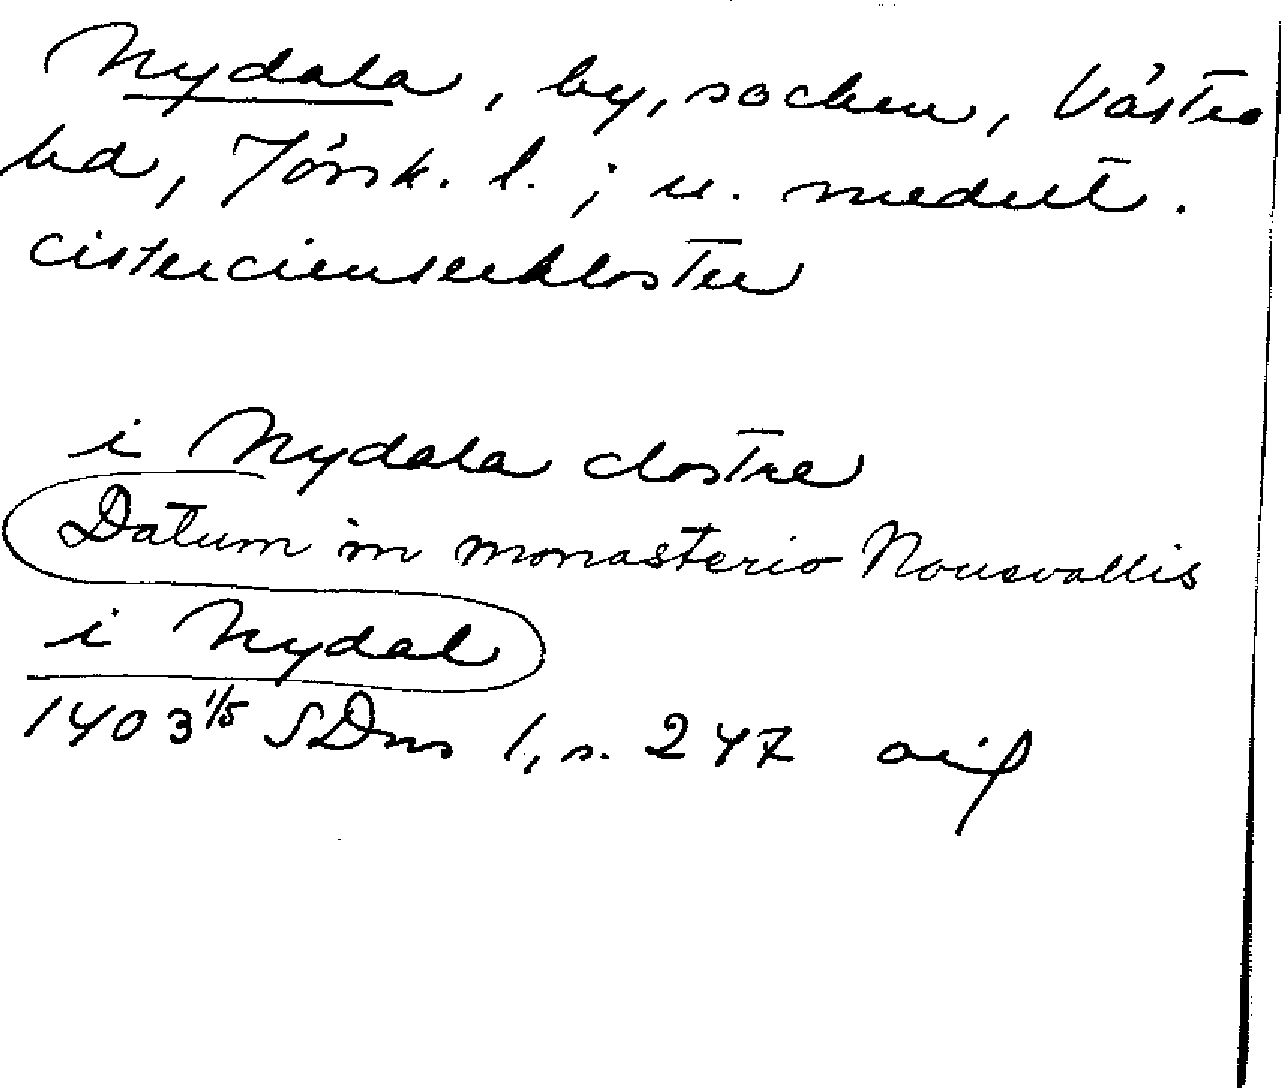 Nydala, by, socken, Västra
hd, Jönk. l.; u. medelt.
cistercienserkloster
i Nydala clostre
Datum in monasterio Nouevallis
i Nydal
1403 1/5 SDns 1, s. 247 orig